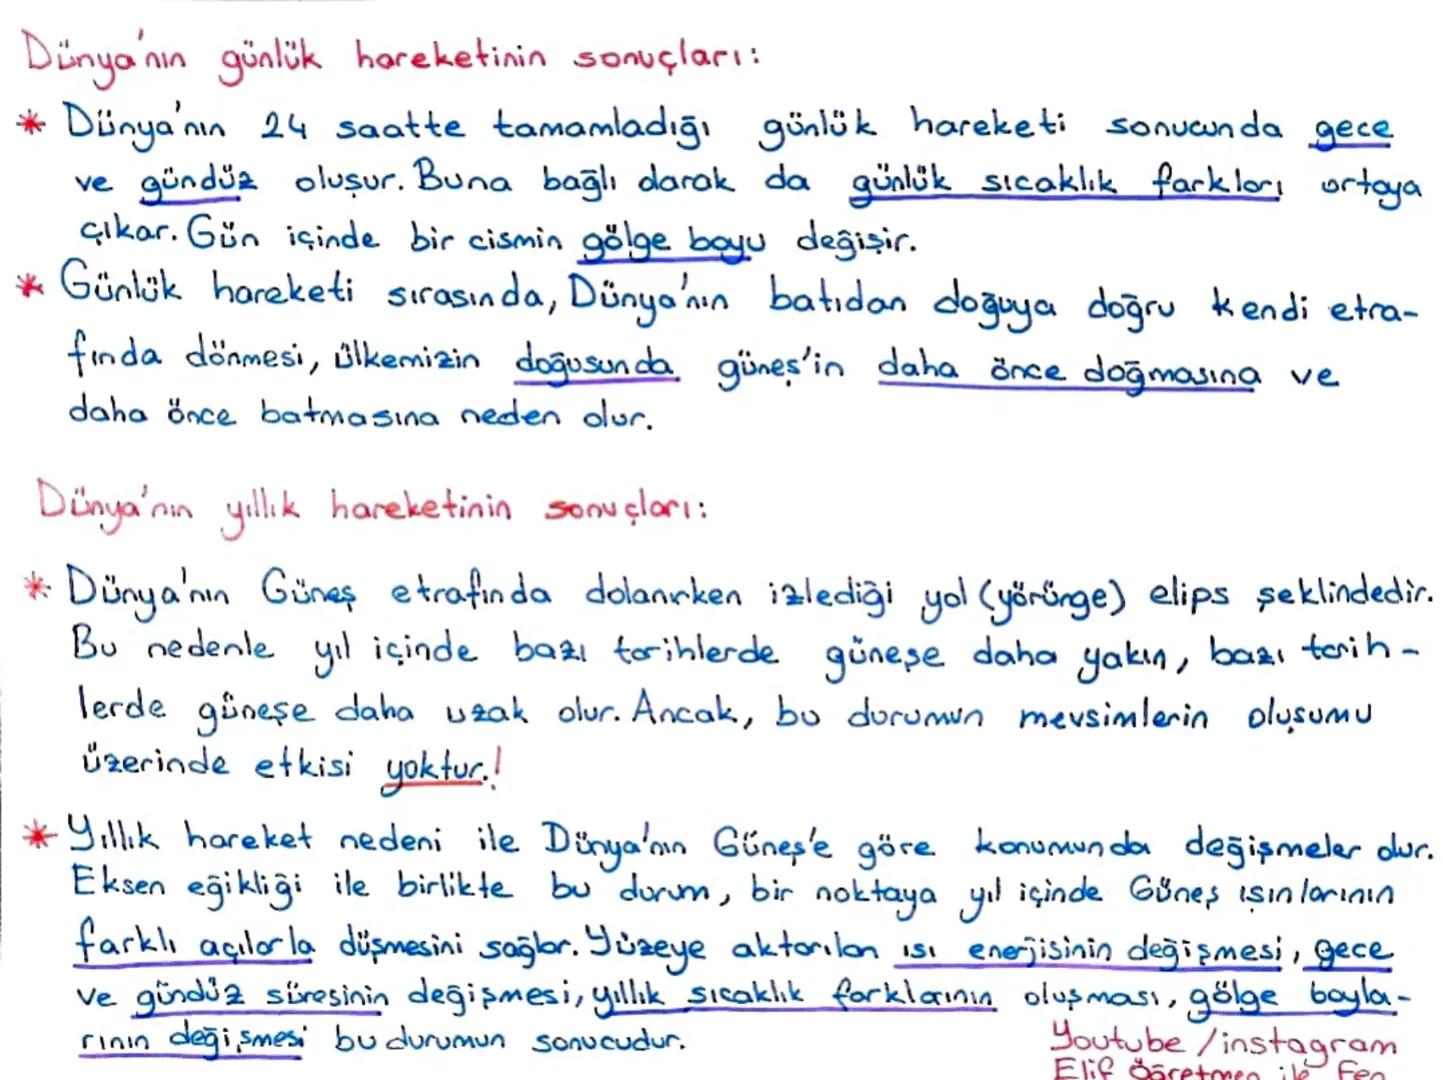 Dünya'nın günlük hareketinin sonuçları:
* Dünya'nın 24 saatte tamamladığı günlük hareketi sonucunda gece
ve gündüz oluşur. Buna bağlı olarak da günlük sıcaklık farkları ortaya
çıkar. Gün içinde bir cismin gölge boyu değişir.
* Günlük hareketi sırasında, Dünya'nın batıdan doğuya doğru kendi etra-
fında dönmesi, ülkemizin doğusunda güneş'in daha önce doğmasına ve
daha önce batmasına neden olur.
Dünya'nın yıllık hareketinin sonuçları:
* Dünya'nın Güneş etrafında dolanırken izlediği yol (yörünge) elips şeklindedir.
Bu nedenle yıl içinde bazı tarihlerde güneşe daha yakın, bazı tarih-
lerde güneşe daha uzak olur. Ancak, bu durumun mevsimlerin oluşumu
üzerinde etkisi yoktur.!
* Yıllık hareket nedeni ile Dünya'nın Güneş'e göre konumunda değişmeler olur.
Eksen eğikliği ile birlikte bu durum, bir noktaya yıl içinde Güneş ışınlarının
farklı açılarla düşmesini sağlar. Yüzeye aktarılan ısı enerjisinin değişmesi, gece
ve gündüz süresinin değişmesi, yıllık sıcaklık farklarının oluşması, gölge boyla-
rının değişmesi bu durumun sonucudur.
Youtube / instagram
Elif Öğretmen ile Fen